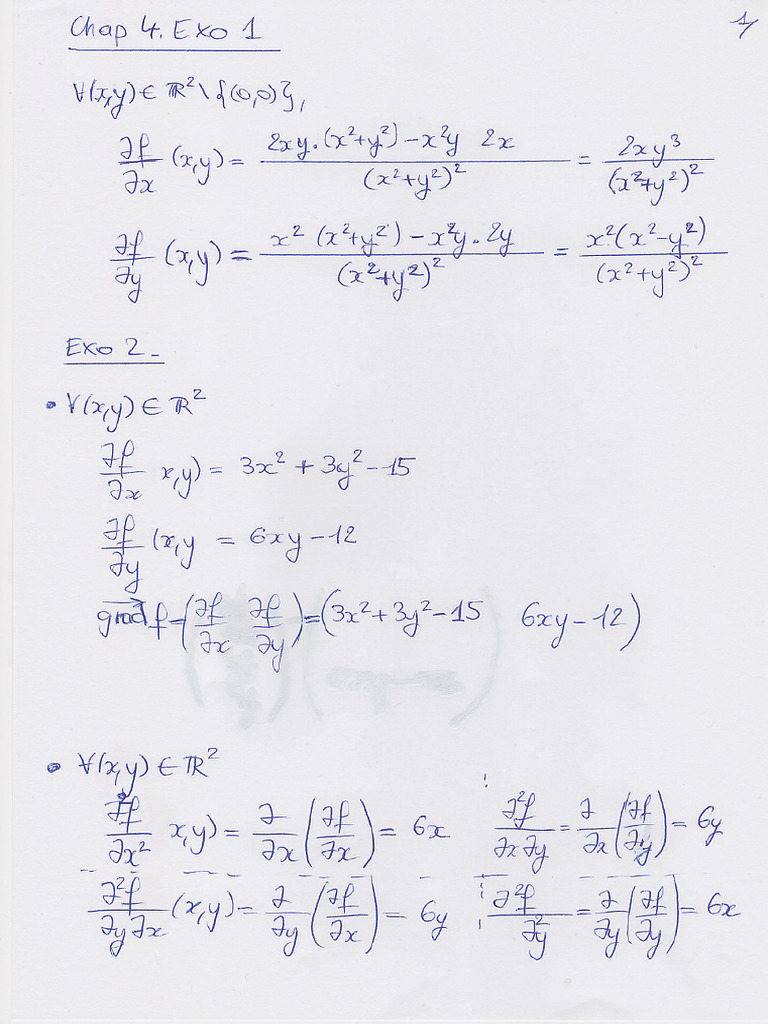 Chap 4. Exo 1 1/
∀(x,y) ∈ ℝ² \ {(0,0)},
∂f/∂x (x,y) = (2xy.(x²+y²) − x²y 2x)/(x²+y²)² = 2xy³/(x²+y²)²
∂f/∂y (x,y) = (x² (x²+y²) − x²y.2y)/(x²+y²)² = x²(x²−y²)/(x²+y²)²
Exo 2 -
• ∀(x,y) ∈ ℝ²
∂f/∂x x,y) = 3x² + 3y² − 15
∂f/∂y (x,y = 6xy − 12
grad f = (∂f/∂x ∂f/∂y) = (3x² + 3y² − 15 6xy − 12)
• ∀(x,y) ∈ ℝ²
∂²f/∂x² x,y) = ∂/∂x (∂f/∂x) = 6x ∂²f/∂x∂y = ∂/∂x (∂f/∂y) = 6y
∂²f/∂y∂x (x,y) = ∂/∂y (∂f/∂x) = 6y ∂²f/∂y² = ∂/∂y (∂f/∂y) = 6x